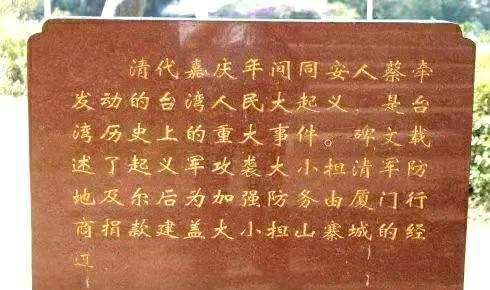 清代嘉庆年间同安人蔡牵
发动的台湾人民大起义，是台
湾历史上的重大事件。碑文载
述了起义军攻袭大小担清军防
地及尔后为加强防务由厦门行
商捐款建盖大小担山寨城的经
过